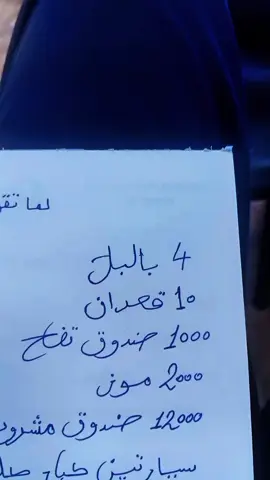 لما تقو
4 بالبل
10 قعدان
1000 صندوق تفاح
2000 موز
12000 صندوق مشروب
سيارتين كبار